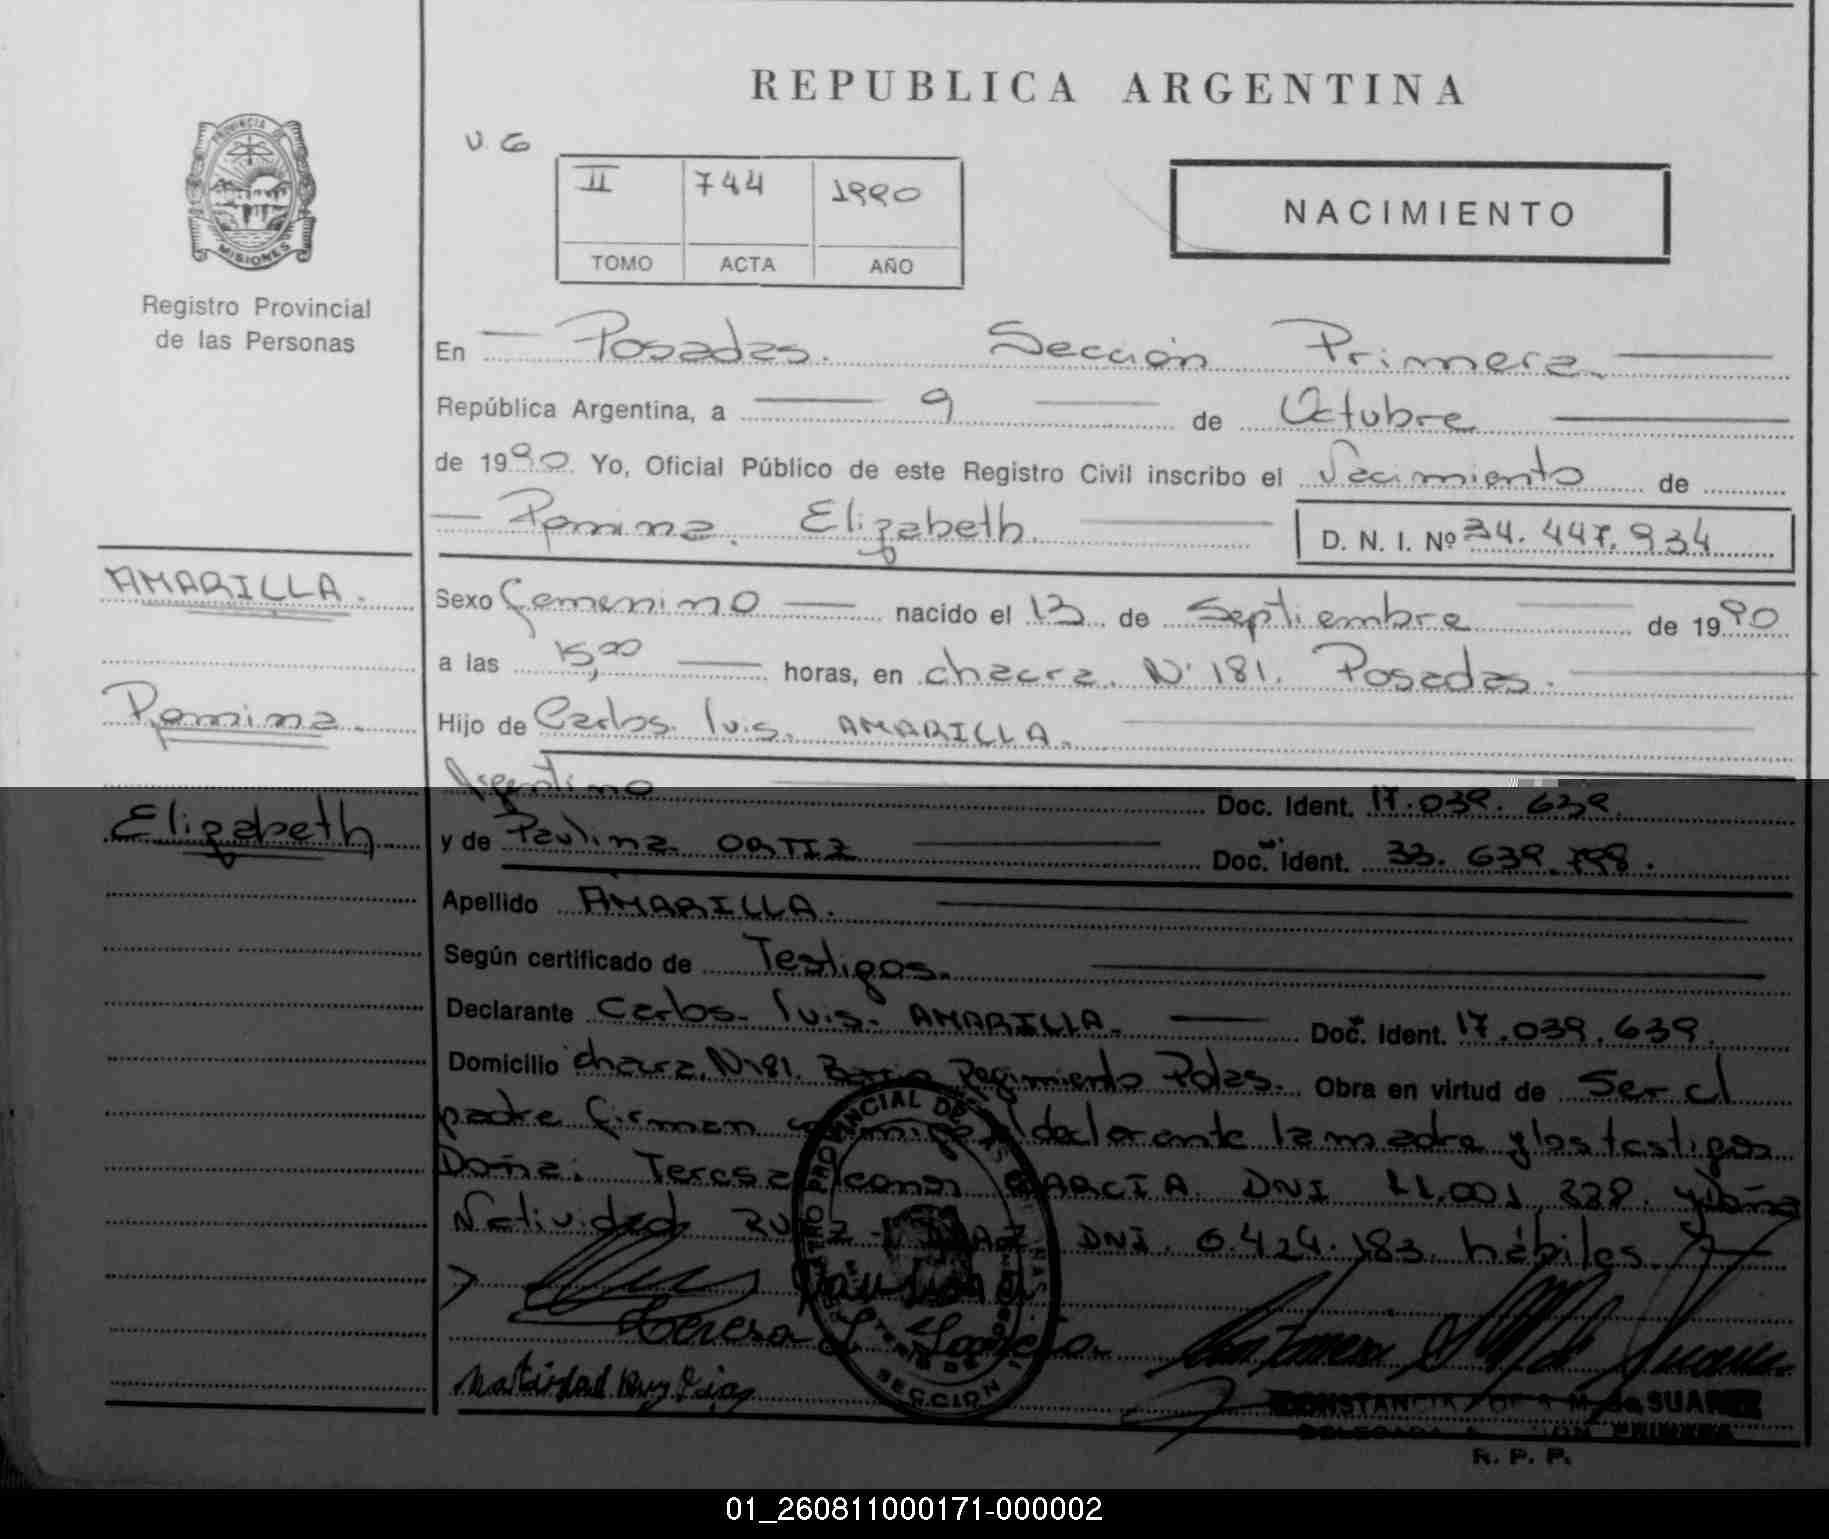 REPUBLICA ARGENTINA
PROVINCIA DE
MISIONES
Registro Provincial
de las Personas
U. G
II 744 1990
TOMO ACTA AÑO
NACIMIENTO
En Posadas. Sección Primera.
República Argentina, a 9 de Octubre
de 1990. Yo, Oficial Público de este Registro Civil inscribo el Nacimiento de
Romina. Elizabeth.
D. N. I. Nº 34.447.934
AMARILLA.
Romina.
Elizabeth
Sexo femenino nacido el 13 de Septiembre de 1990
a las 15,00 horas, en chacra. Nº 181. Posadas.
Hijo de Carlos. luis. AMARILLA.
Argentino Doc. Ident. 17.039.639.
y de Paulina. ORTIZ Doc. Ident. 33.639.798.
Apellido AMARILLA.
Según certificado de Testigos.
Declarante Carlos. luis. AMARILLA. Doc. Ident. 17.039.639.
Domicilio chacra. Nº181. Regimiento Pdas. Obra en virtud de Ser el
padre firman conmigo el declarante la madre y los testigos
Doña: Teresa Leonor GARCIA. DNI 11.001.328. y Doña
Natividad RUIZ DIAZ DNI. 6.424.183. hábiles.
Paulina
Teresa L. Garcia.
Natividad Ruiz Diaz
SECCION
de SUAREZ
R. P. P.
01_260811000171-000002